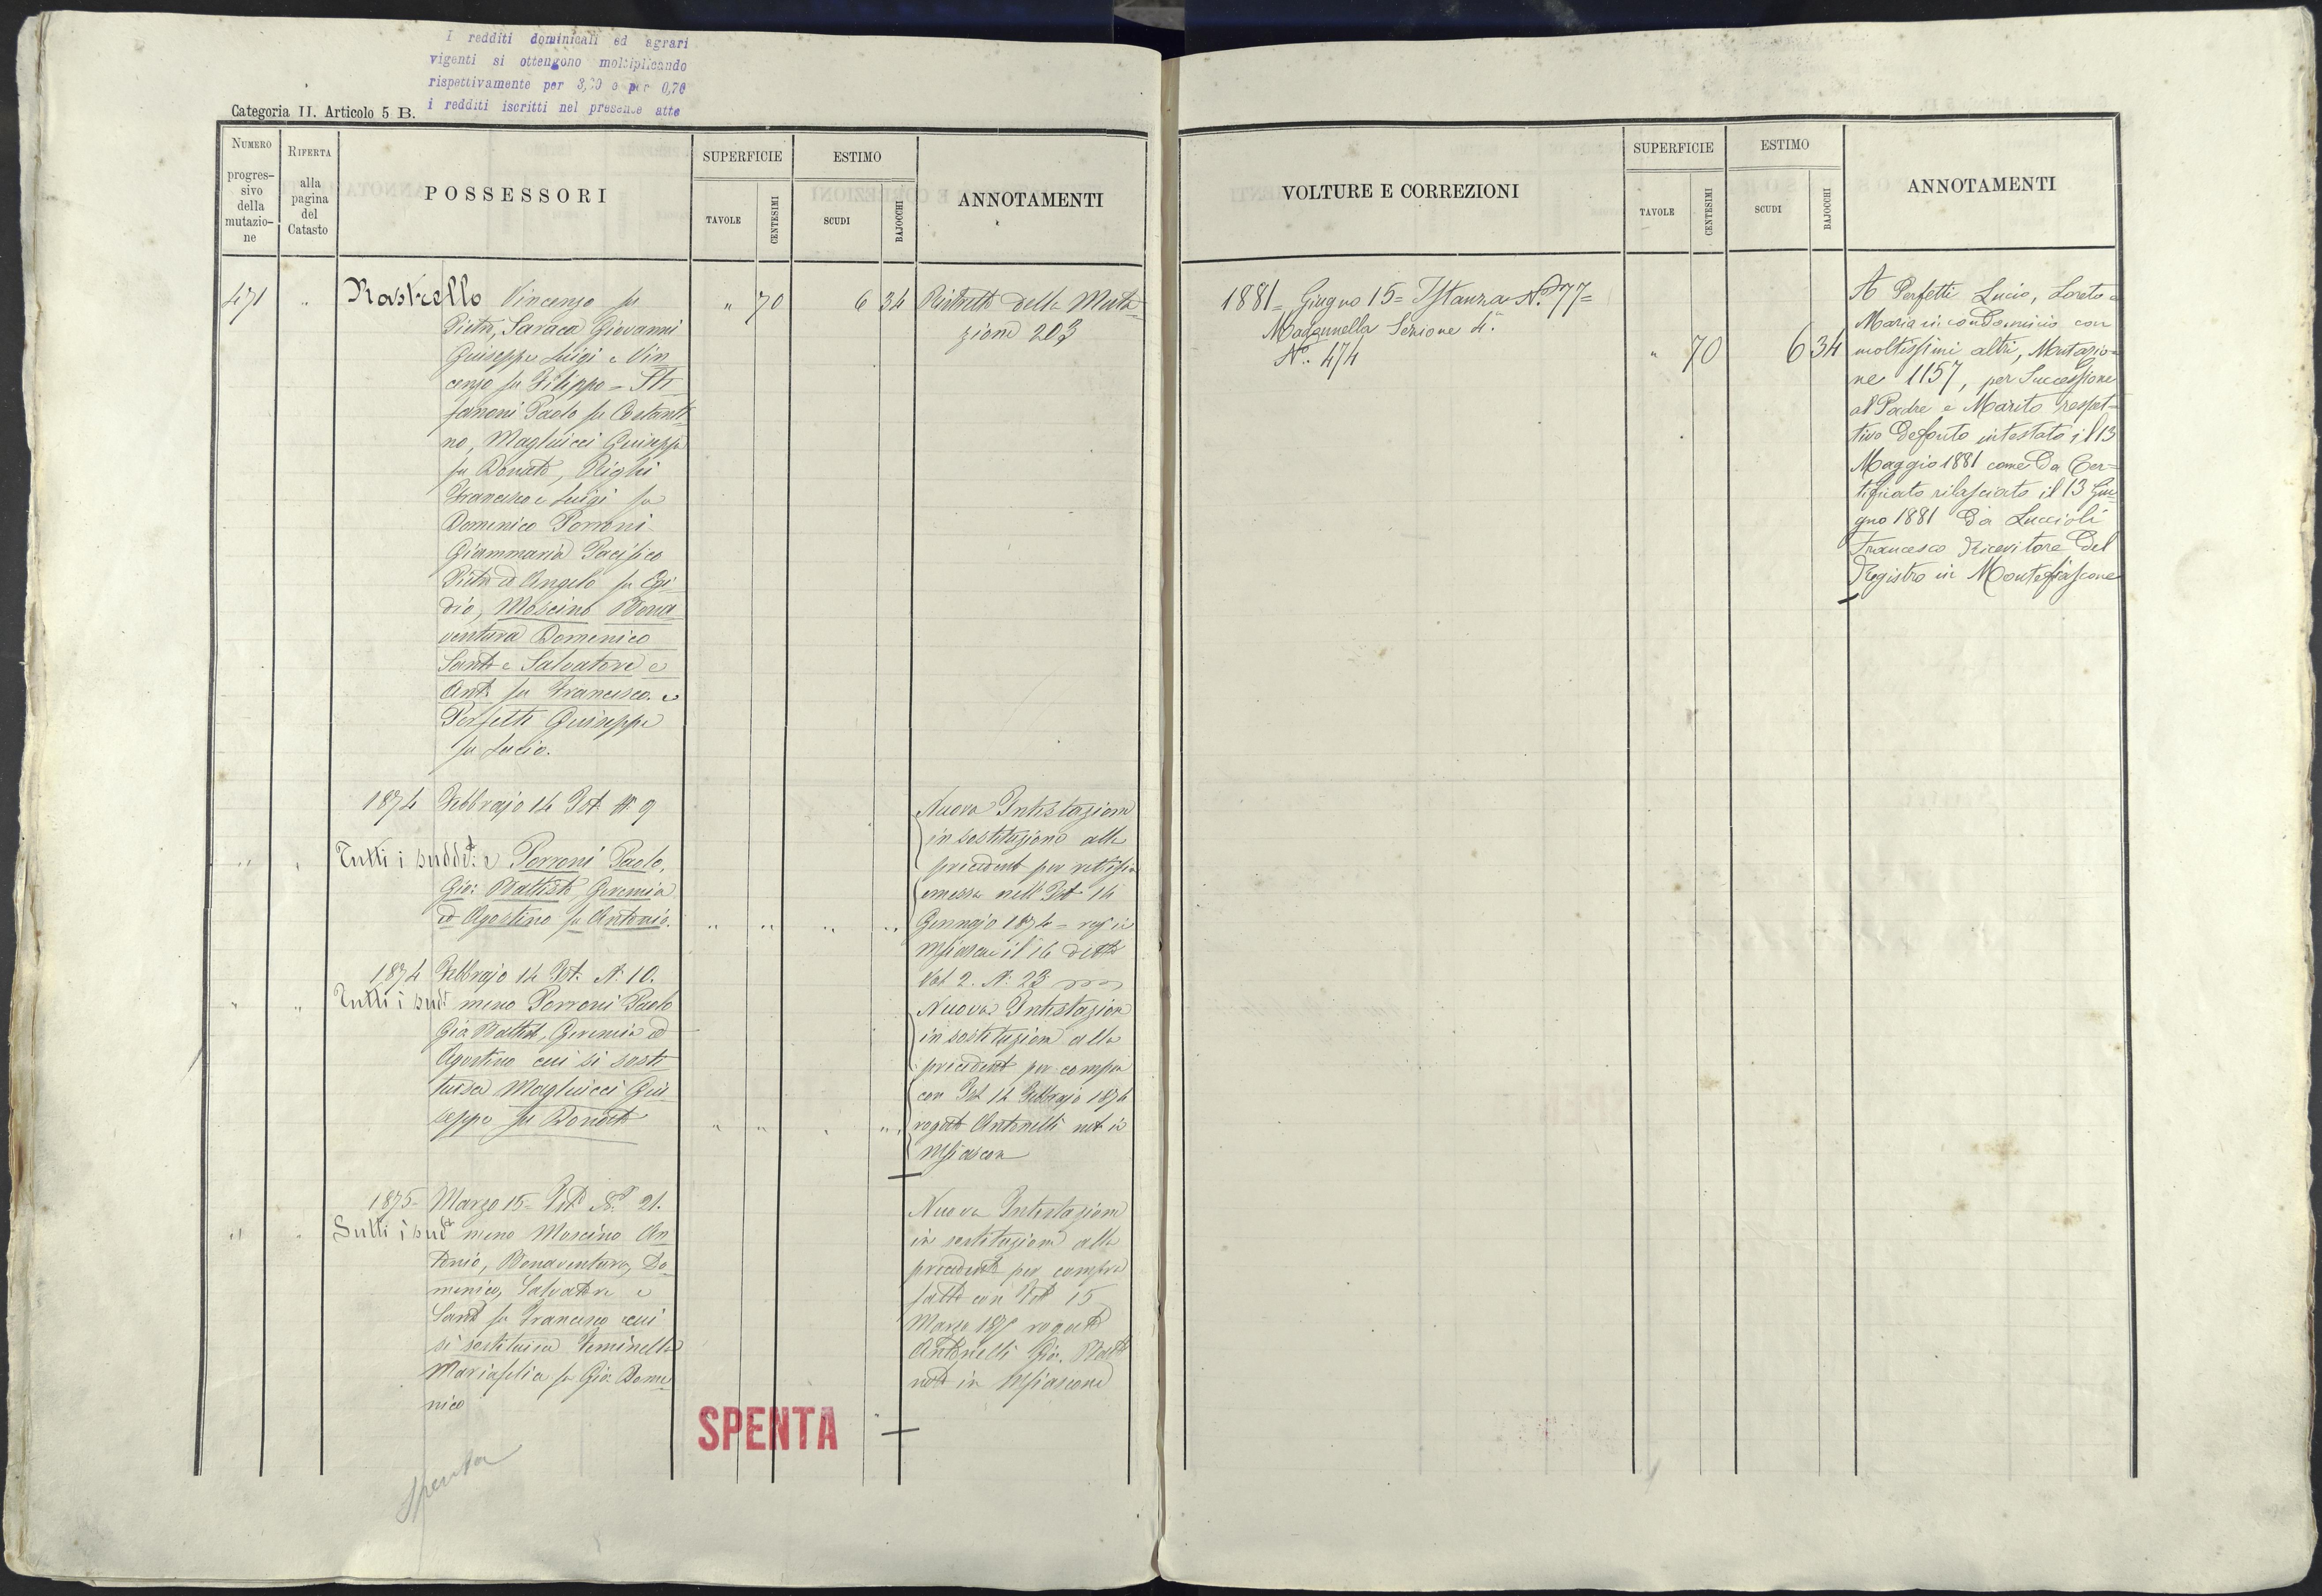 I redditi dominicali ed agrari
vigenti si ottengono moltiplicando
rispettivamente per 3,20 e per 0,70
i redditi iscritti nel presente atto
Categoria II. Articolo 5 B.
NUMERO progressivo della mutazione
RIFERTA alla pagina del Catasto
POSSESSORI
SUPERFICIE
TAVOLE
CENTESIMI
ESTIMO
SCUDI
BAJOCCHI
ANNOTAMENTI
471 " Rastrello Vincenzo fu " 70 6 34
Pietro, Saraca Giovanni
Giuseppe Luigi e Vin
cenzo fu Filippo = Ste
fanoni Paolo fu Costanti
no, Magluicci Giuseppe
fu Donato, Righi
Francesco e Luigi fu
Domenico Porroni
Giammaria Pacifico
Pietro ed Angelo fu Egi
dio, Moscino Bona
ventura Domenico
Santo e Salvatore e
Anto fu Francesco e
Perfetti Giuseppe
fu Lucio.
della Muta
zione 203
1874 Febbrajo 14 Ist. N. 9
Tutti i suddti e Porroni Paolo,
Gio: Battista Geremia
ed Agostino fu Antonio.
Nuova Intestazione
in sostituzione alla
precedente per rettifica
emessa nell' Ist 14
Gennajo 1874 = reg in
Mfiascone il 16 detto
Vol 2. N. 23
1874 Febbrajo 14 Ist. N. 10.
Tutti i sudti meno Porroni Paolo
Gio: Battist, Geremia ed
Agostino cui si sosti
tuisca Magluicci Giu
seppe fu Donato
Nuova Intestazion
in sostituzion alla
precedent per compra
con Ist 14 Febbrajo 1874
rogato Antonelli not in
Mfiascon
1875 Marzo 15 = Ist N. 21.
Tutti i sudti meno Moscino An
tonio, Bonaventura, Do
menico, Salvatore e
Santo fu Francesco cui
si sostituisca
Mariafelica fu Gio: Dome
nico
Nuova Intestazione
in sostituzione alla
precedente per compra
fatta con Ist 15
Marzo 1875 rogato
Antonelli Gio. Batta
noto in Mfiascone
SPENTA
Spenta
VOLTURE E CORREZIONI
SUPERFICIE
TAVOLE
CENTESIMI
ESTIMO
SCUDI
BAJOCCHI
ANNOTAMENTI
1881 = Giugno 15 = Istanza N.° 77 =
Madonnella Sezione 4.ª
N.° 474 " 70 6 34
A Perfetti Lucio, Loreto e
Maria in condominio con
moltissimi altri, Mutazio=
ne 1157, per Successione
al Padre e Marito respet=
tivo defonto intestato il 13
Maggio 1881 come da Cer=
tificato rilasciato il 13 Giu=
gno 1881 da Luccioli
Francesco Ricevitore del
Registro in Montefiascone